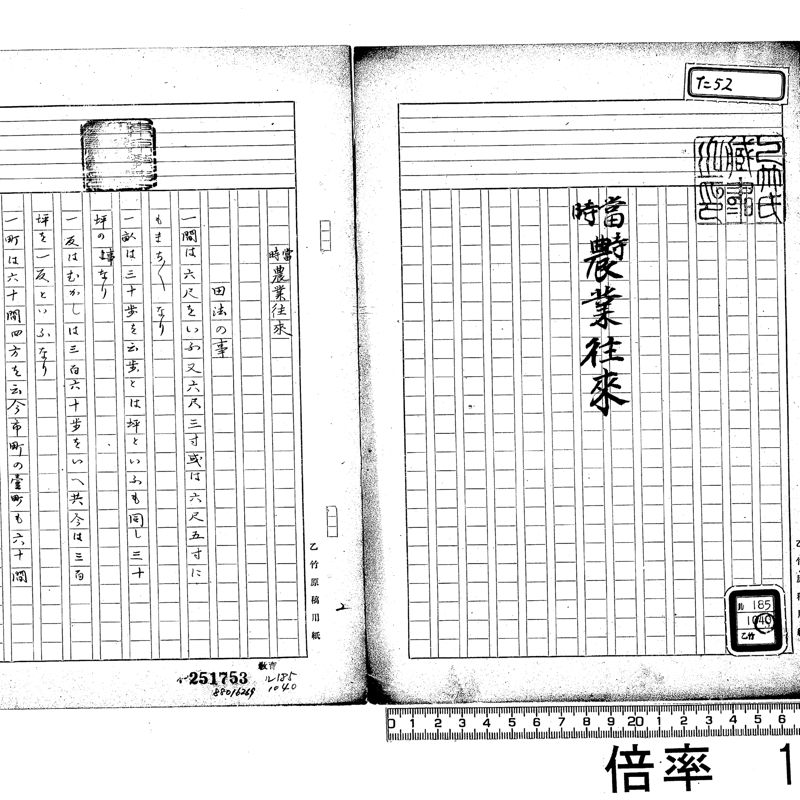 たー52
乙竹氏
蔵書
當時農業往來
ル 185
1040
乙竹
當時農業往來
田法の事
一間は六尺をいふ又六尺三寸或は六尺五寸に
もまち〱なり
一畝は三十歩を云歩とは坪といふも同し三十
坪の事なり
一反はむかしは三百六十歩をいへ共今は三百
坪を一反といふなり
一町は六十間四方を云今市町の壹町も六十間
乙竹原稿用紙
2
251753
88016269
教育
ル185
1040
0 1 2 3 4 5 6 7 8 9 20 1 2 3 4 5 6
倍率 1